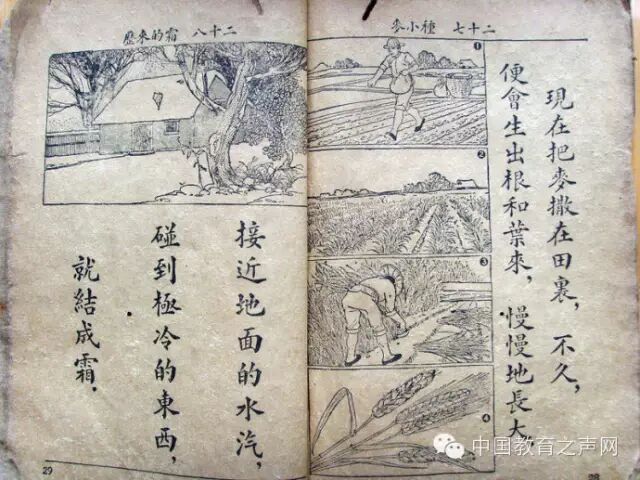 二十七 種小麥
現在把麥撒在田裏，不久，
便會生出根和葉來，慢慢地長大，
1
2
3
4
二十八 霜的來歷
接近地面的水汽，
碰到極冷的東西，
就結成霜．
29
中国教育之声网